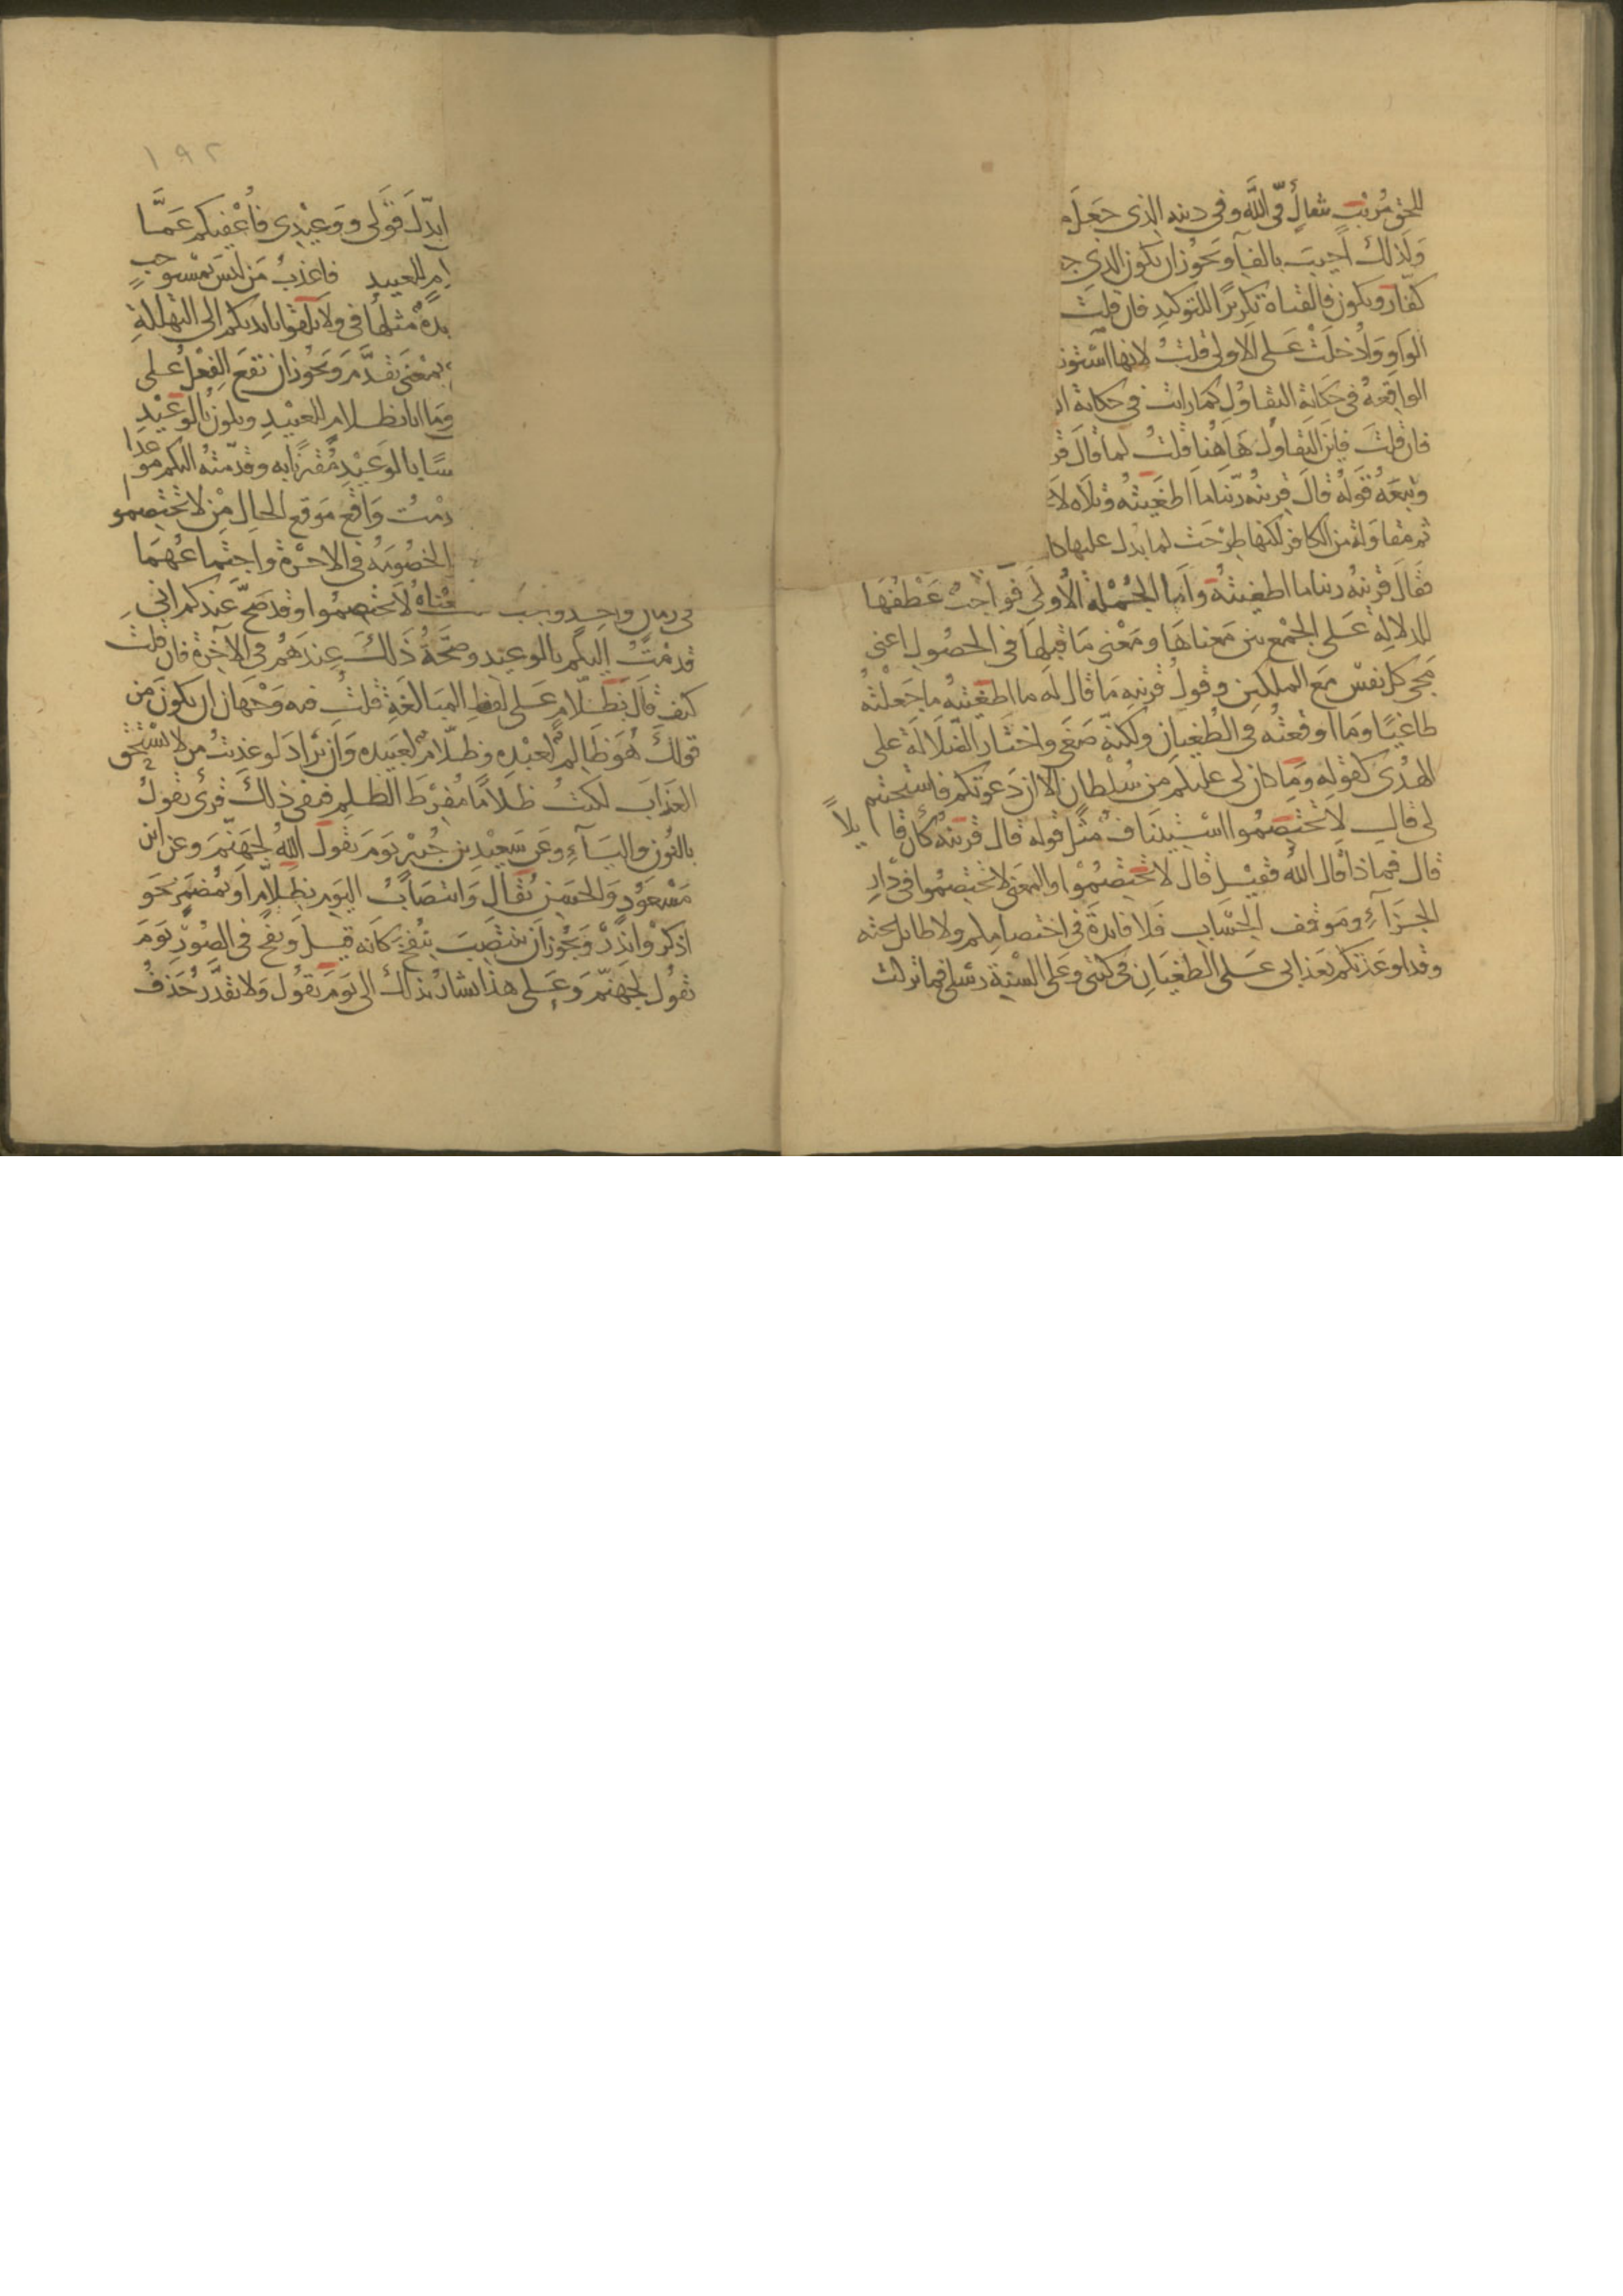 للحق مريب شاك فى الله وفى دينه الذى جعل م
ولذلك اجيب بالفاء ويجوز ان يكون الذى ج
كفار ويكون فالقياه تكريرا للتوكيد فان قلت
الواو وادخلت على الاولى قلت لانها استونف
الواقعة فى حكاية التقاول كما رايت فى حكاية ا
فان قلت فاين التقاول هاهنا قلت لما قال قر
وتبعه قوله قال قرينه ربنا ما اطغيته وتلاه لا
ثم مقاولة من الكافر لكنها طرحت لما يدل عليها كا
فقال قرينه ربنا ما اطغيته واما الجملة الاولى فواجب عطفها
للدلالة على الجمع بين معناها ومعنى ما قبلها فى الحصول اعنى
مجى كل نفس مع الملكين وقول قرينه ما قال له ما اطغيته ما جعلته
طاغيا وما اوقعته فى الطغيان ولكنه صغى واختار الضلالة على
الهدى كقوله وما كان لى عليكم من سلطان الا ان دعوتكم فاستجبتم
لى قال لا تختصموا استيناف مثل قوله قال قرينه كأن قايلا
قال فماذا قال الله فقيل قال لا تختصموا والمعنى لا تختصموا فى دار
الجزاء وموقف الحساب فلا فائدة فى اختصامكم ولا طائل تحته
وقد اوعدتكم بعذابى على الطغيان فى كتبى وعلى السنة رسلى فما تركت
١٩٢
ابدل قولى ووعيدى فاعفيكم عما
ام للعبيد فاعذب من ليس بمستوجب
يدة مثلها فى ولا تلقوا بايديكم الى التهلكة
بمعنى تقدم ويجوز ان تقع الفعل على
وما انا بظلام للعبيد ويكون بالوعيد
سا بالوعيد مقترنا به وقدمته اليكم موعدا
دمت واقع موقع الحال من لا تختصموا
الخصومة فى الاخرة واجتماعهما
فى زمان واحد وجب معناه لا تختصموا وقد صح عندكم انى
قدمت اليكم بالوعيد وصحة ذلك عندهم فى الآخرة فان قلت
كيف قال بظلام على لفظ المبالغة قلت فيه وجهان ان يكون من
قولك هو ظالم لعبده وظلام لعبيده وان يراد لو عذبت من لا يستحق
العذاب لكنت ظلاما مفرط الظلم فنفى ذلك قرئ نقول
بالنون والياء وعن سعيد بن جبير يوم نقول الله لجهنم وعن ابن
مسعود والحسن يقال وانتصاب اليوم بظلام او بمضمر نحو
اذكر وانذر ويجوز ان ينتصب بنفخ كانه قيل ونفخ فى الصور يوم
نقول لجهنم وعلى هذا يشار بذلك الى يوم نقول ولا تقدر حذف